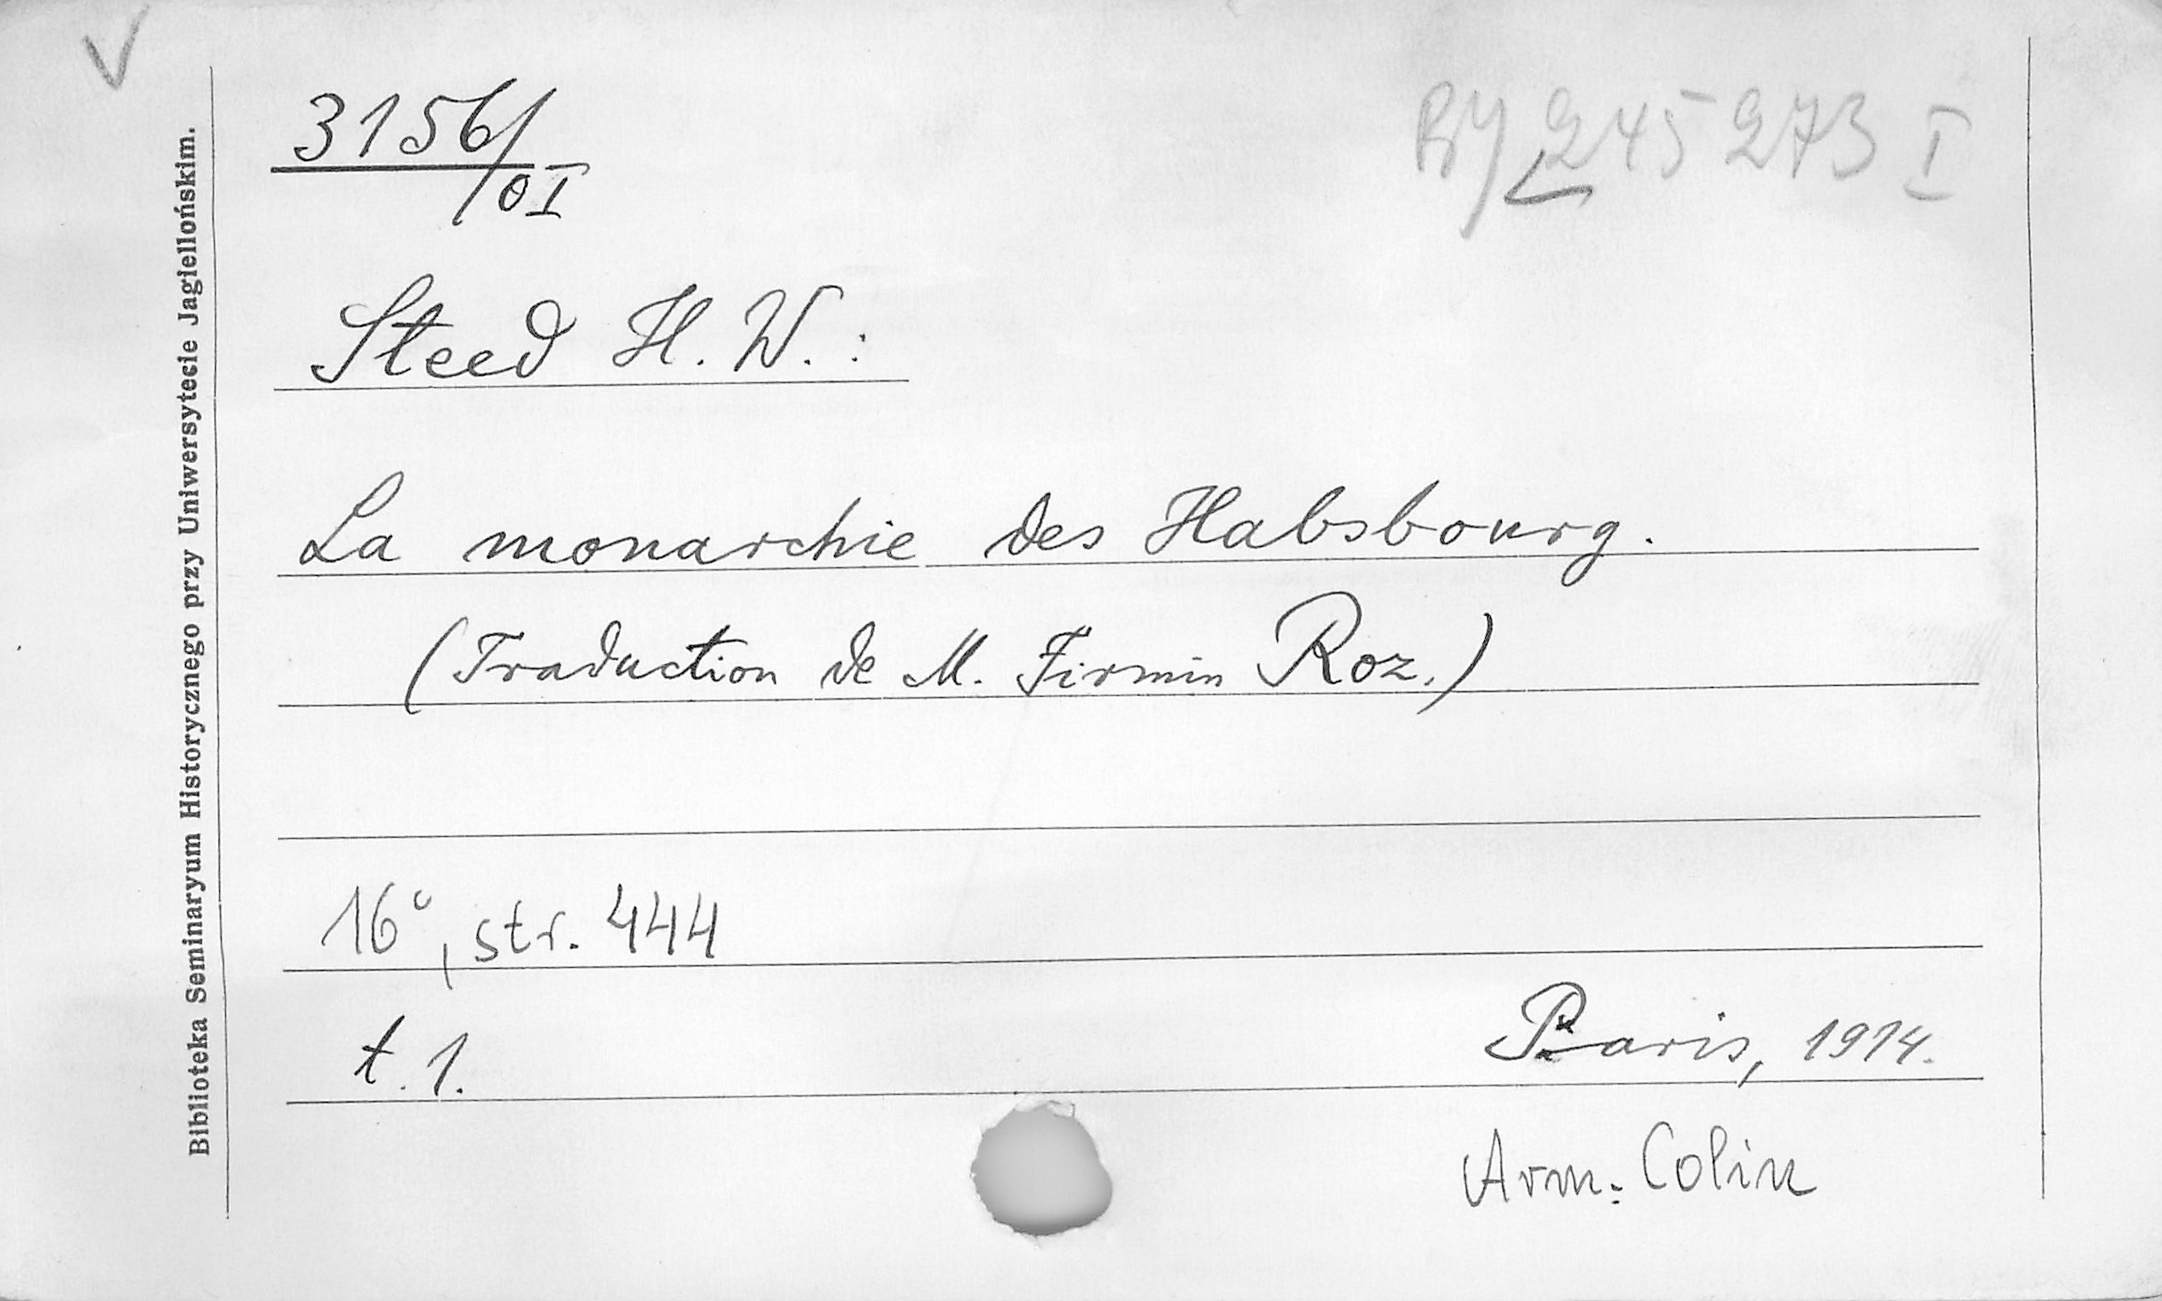 V
3156/OI
BJ 245273 I
Steed H. W.:
La monarchie des Habsbourg.
(Traduction de M. Firmin Roz.)
16°, str. 444
t. 1.
Paris, 1914.
Arm. Colin
Biblioteka Seminaryum Historycznego przy Uniwersytecie Jagiellońskim.